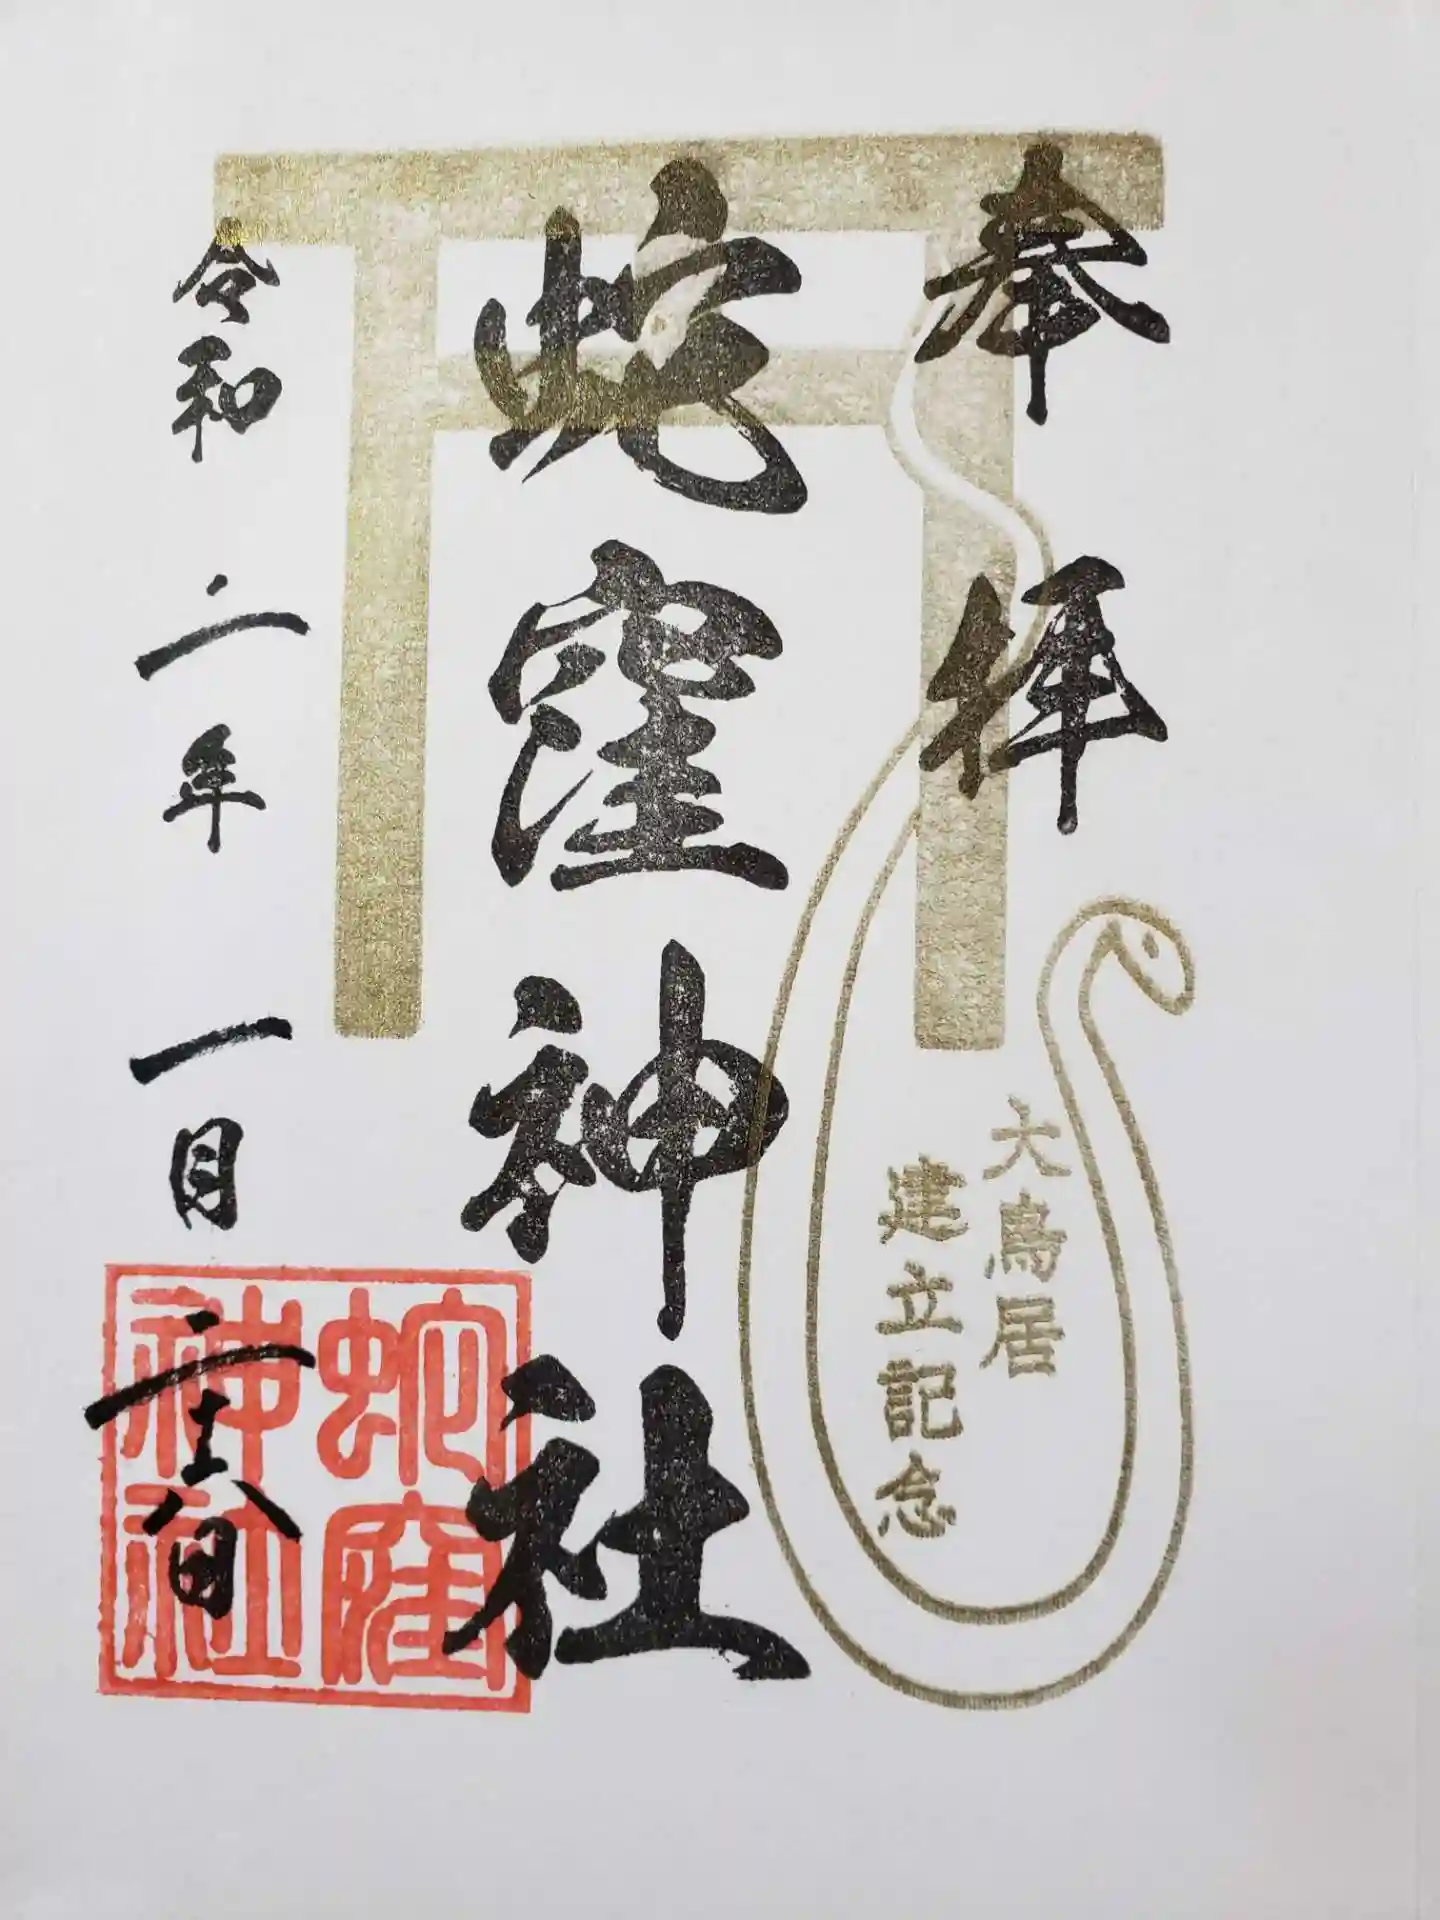 奉拝
大鳥居
建立記念
蛇窪神社
令和二年一月二十八日
蛇窪
神社